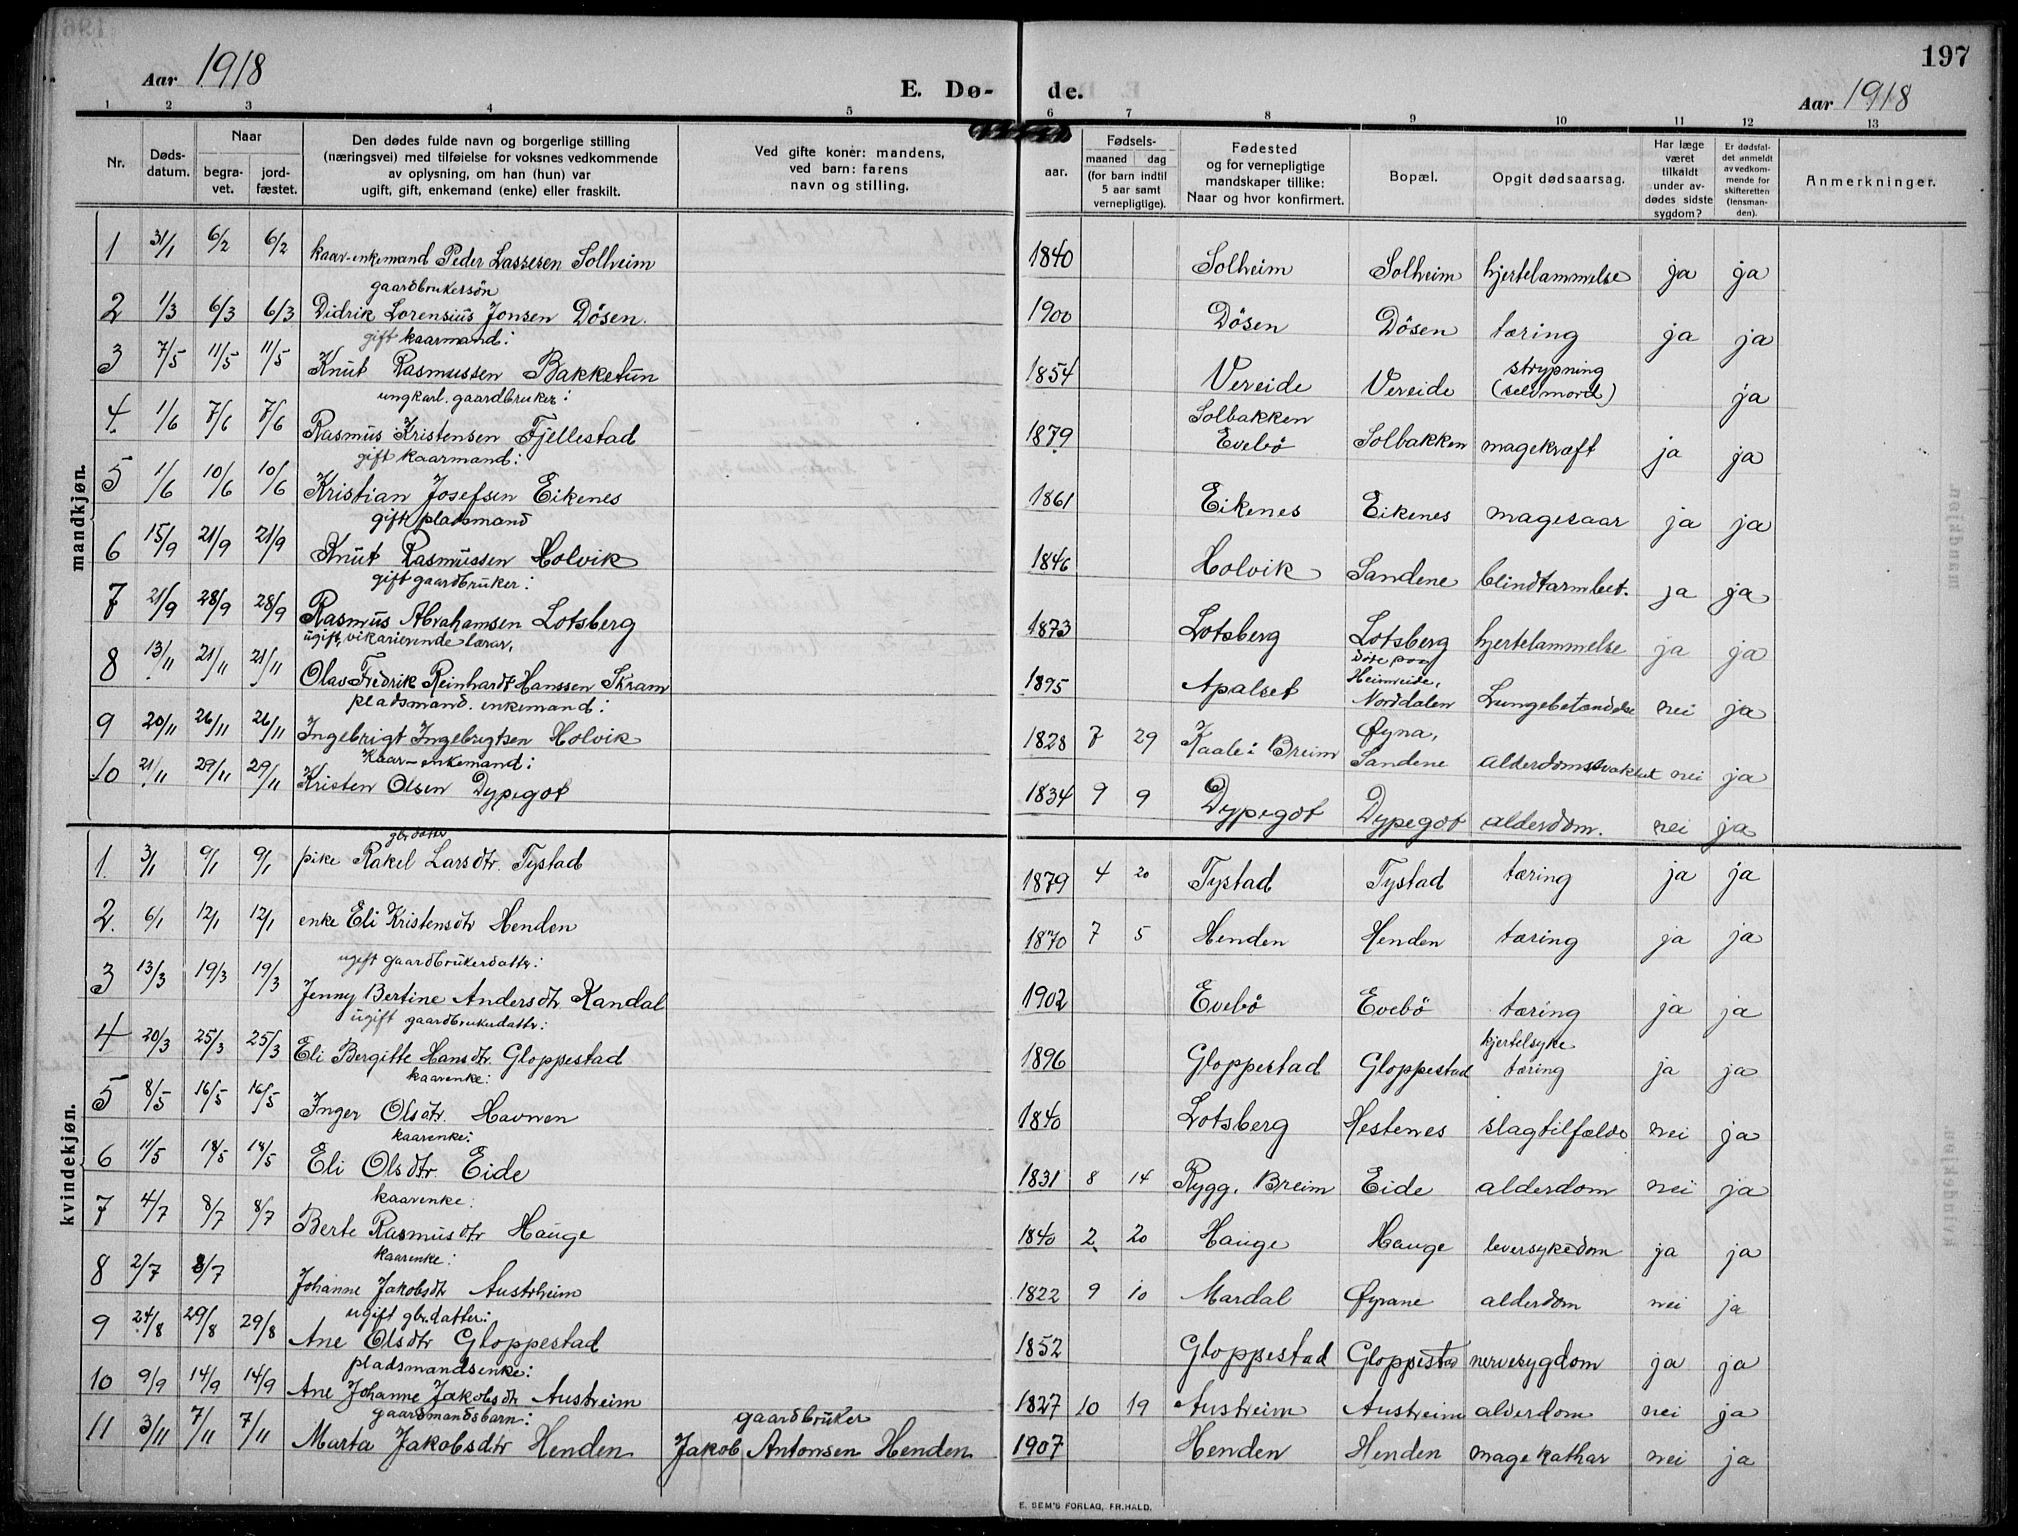 Aar 1918
E. Dø- de.
197
Aar 1918
1 2 3 4 5 6 7 8 9 10 11 12 13
Nr.
Døds-
datum.
Naar
begra-
vet.
jord-
fæstet.
Den dødes fulde navn og borgerlige stilling
(næringsvei) med tilføielse for voksnes vedkommende
av oplysning, om han (hun) var
ugift, gift, enkemand (enke) eller fraskilt.
Ved gifte koner: mandens,
ved barn: farens
navn og stilling.
aar.
Fødsels-
maaned dag
(for barn indtil
5 aar samt
vernepligtige).
Fødested
og for vernepligtige
mandskaper tillike:
Naar og hvor konfirmert.
Bopæl.
Opgit dødsaarsag.
Har læge
været
tilkaldt
under av-
dødes sidste
sygdom?
Er dødsfal-
det anmeldt
av vedkom-
mende for
skifteretten
(lensman-
den).
Anmerkninger.
mandkjøn.
1 31/1 6/2 6/2 kaar-enkemand Peder Lassesen Solheim 1840 Solheim Solheim hjertelammelse ja ja
gaardbrukersøn
2 1/3 6/3 6/3 Didrik Lorensius Jonsen Døsen. 1900 Døsen Døsen tæring ja ja
gift kaarmand:
3 7/5 11/5 11/5 Knut Rasmussen Bakketun 1854 Vereide Vereide strypning (selvmord) ja
ungkarl. gaardbruker:
4. 1/6 7/6 7/6 Rasmus Kristensen Fjellestad 1879 Solbakken Evebø Solbakken magekræft ja ja
gift kaarmand:
5 1/6 10/6 10/6 Kristian Josefsen Eikenes 1861 Eikenes Eikenes magesaar ja ja
gift pladsmand
6 15/9 21/9 21/9 Knut Rasmussen Holvik 1846 Holvik Sandene blindtarmbet. ja ja
gift gaardbruker:
7 21/9 28/9 28/9 Rasmus Abrahamsen Lotsberg 1873 Lotsberg Lotsberg hjertelammelse ja ja
ugift, vikarierende lærar,
8 13/11 21/11 21/11 Olav Fredrik Reinhardt Hanssen Skram 1895 Apalset døde paa Heimreide, Norddalen Lungebetændelse nei ja
pladsmand. enkemand:
9 20/11 26/11 26/11 Ingebrigt Ingebrigtsen Holvik 1828 7 29 Kaale i Breim Øyna, Sandene alderdomssvakhet nei ja
Kaar-enkemand:
10 21/11 29/11 29/11 Kristen Olsen Dypegot 1834 9 9 Dypegot Dypegot alderdom. nei ja
kvindekjøn.
gbrdattr
1. 3/1 9/1 9/1 pike Rakel Larsdtr. Tystad 1879 4 20 Tystad Tystad tæring ja ja
2. 6/1 12/1 12/1 enke Eli Kristensdtr Henden 1870 7 5 Henden Henden tæring ja ja
ugift gaardbrukerdattr:
3 13/3 19/3 19/3 Jenny Bertine Andersdtr. Kandal 1902 Evebø Evebø tæring ja ja
ugift gaardbrukerdattr:
4 20/3 25/3 25/3 Eli Bergitte Hansdtr. Gloppestad 1896 Gloppestad Gloppestad kjertelsyke tæring ja ja
kaarenke:
5 8/5 16/5 16/5 Inger Olsdtr. Havnen 1840 Lotsberg Hestenes slagtilfælde nei ja
kaarenke:
6 11/5 18/5 18/5 Eli Olsdtr. Eide 1831 8 14 Rygg, Breim Eide alderdom nei ja
kaarenke:
7 4/7 8/7 8/7 Berte Rasmusdtr Hauge 1840 2 20 Hauge Hauge leversykedom ja ja
kaarenke:
8 2/7 8/7 Johanne Jakobsdtr Austrheim 1822 9 10 Mardal Øyrane alderdom nei ja
ugift gbr.datter:
9 24/8 29/8 29/8 Ane Olsdtr Gloppestad 1852 Gloppestad Gloppestad nervesygdom ja ja
pladsmandsenke:
10 9/9 14/9 14/9 Ane Johanne Jakobsdtr Austreim 1827 10 19 Austreim Austreim alderdom nei ja
gaardmandsbarn: gaardbruker
11 3/11 7/11 7/11 Marta Jakobsdtr Henden Jakob Antonsen Henden 1907 Henden Henden magekathar nei ja
E. SEM'S FORLAG, FR.HALD.